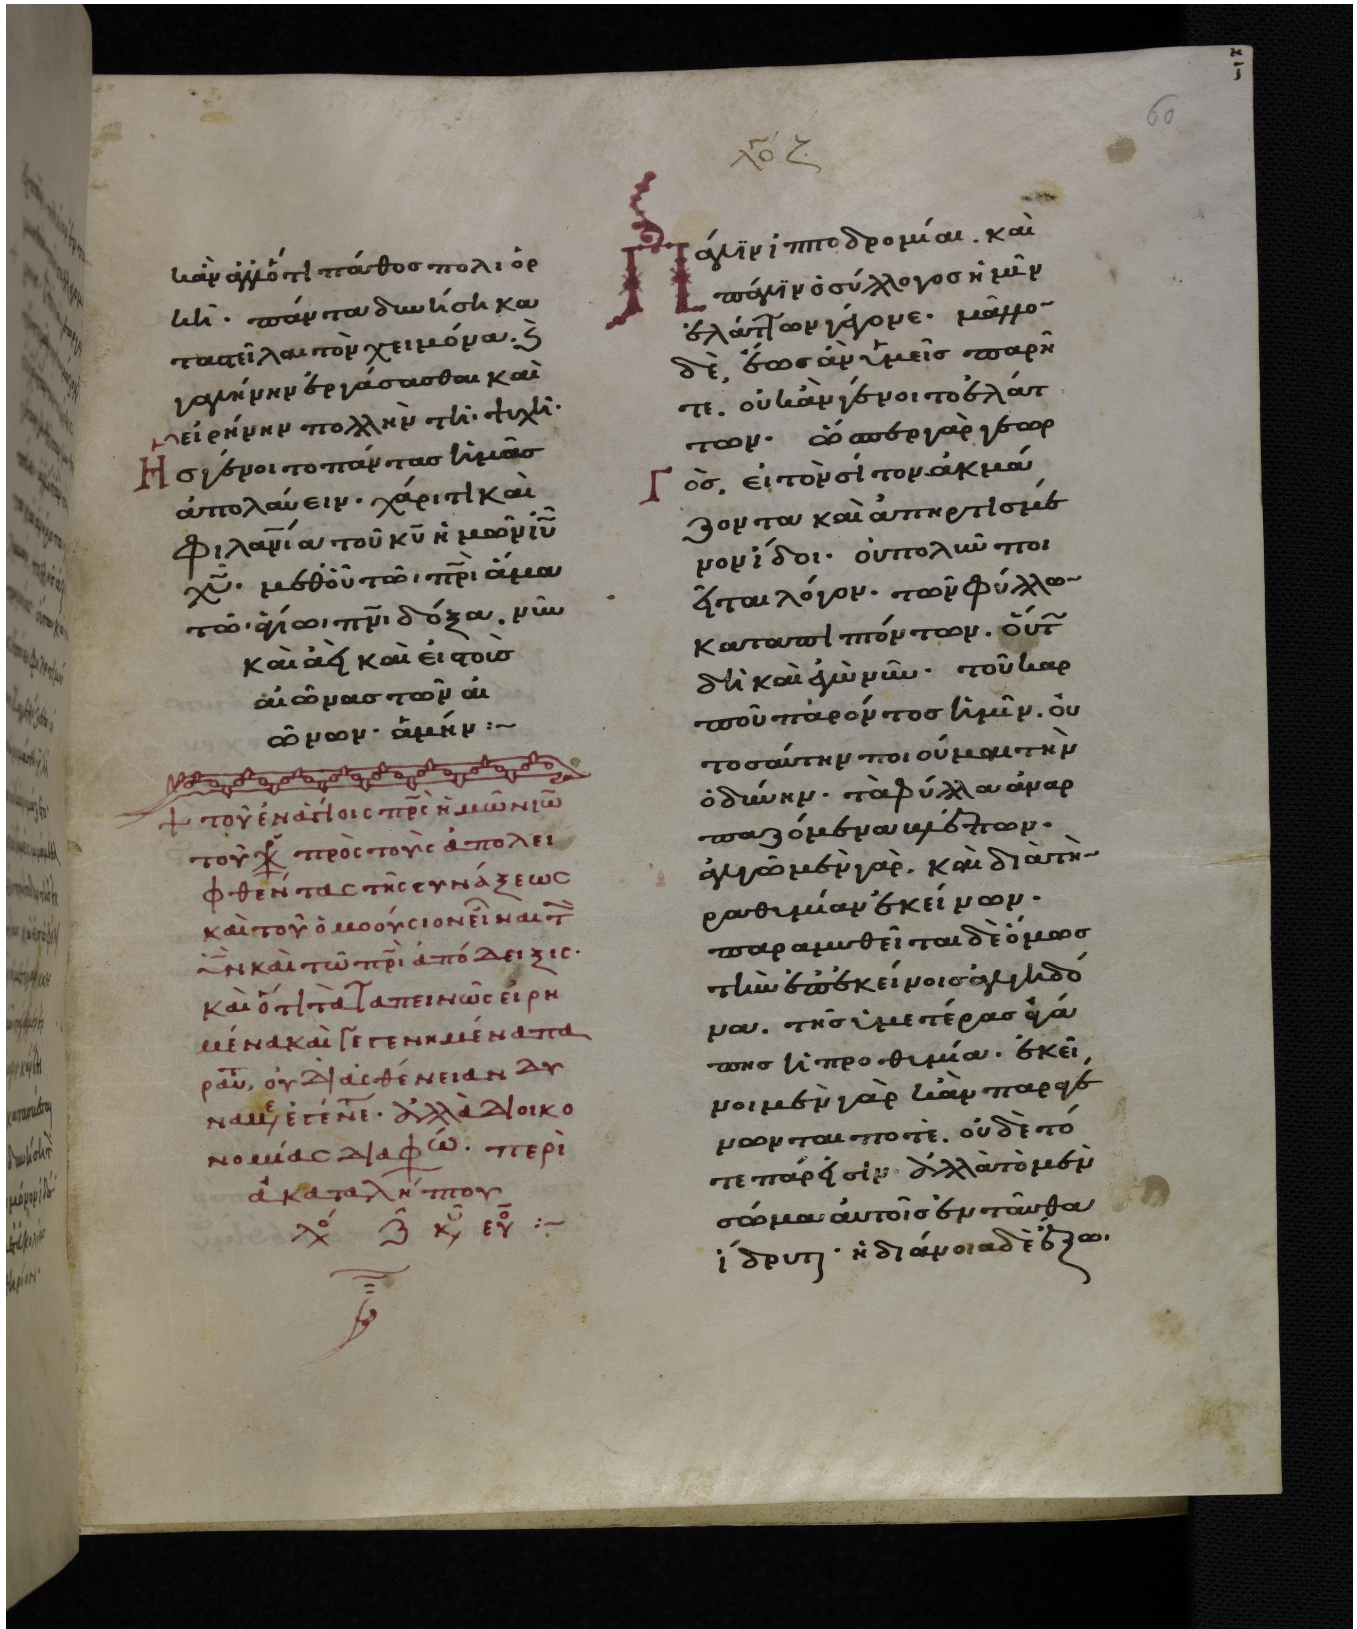 ξ
60
λόγ ζ
κἂν ἄλλό τι πάθος πολιὀρ
κῆ· πάντα δυνήση κα
ταστεῖλαι τὸν χειμῶνα· καὶ
γαλήνην ἐργάσασθαι καὶ
εἰρήνην πολλὴν τῆ ψυχῆ·
Ἧσ γένοιτο πάντας ἡμᾶσ
ἀπολαύειν· χάριτι καὶ
φιλανΐα τοῦ κῦ ἡμῶν ἰῦ
χῦ· μεθ οὗ τῶ πρὶ ἅμα
τῶ ἁγίω πνι δόξα. νῦν
καὶ ἀεὶ καὶ εἰς τοὺσ
αἰῶνασ τῶν αἰ
ώνων· ἀμήν :~
τοῦ ἐν ἁγίοις πρς ἡμῶν ἰω
τοῦ χρ πρὸς τοὺς ἀπολει
φθέντας τῆς συνάξεως
καὶ τοῦ ὁμοούσιον εἶναι τ
υν καὶ τῶ πρὶ ἀπόδειξις·
καὶ ὅτι τὰ ταπεινῶς εἰρη
μένα καὶ γεγενημένα πα
ρ αυ, οὐ δι ἀσθένειαν δυ
νάμε ἐγένε· ἀλλὰ δι οἰκο
νομίας διαφω· περὶ
ἀκαταλήπτου
λό ζ κυ εὐ :~
Πάλιν ἱπποδρομίαι. καὶ
πάλιν ὁ σύλλογος ἡμῖν
ἐλάττων γέγονε· μᾶλλο
δὲ, ἕως ἂν ὑμεῖς παρῆ
τε. οὐκ ἂν γένοιτο ἐλάτ
των· ὥσπερ γὰρ γεωρ
Γὸς, εἰ τὸν σῖτον ἀκμά
ζοντα καὶ ἀπηρτισμέ
νον ἴδοι· οὐ πολὺν ποι
εῖται λόγον· τῶν φύλλω
καταπιπτόντων. οὕτ
δὴ καὶ ἐγὼ νῦν· τοῦ καρ
ποῦ παρόντος ἡμῖν. οὐ
τοσαύτην ποιοῦμαι τὴν
ὀδύνην· τὰ φύλλα ἀναρ
παζόμενα βλέπων·
ἀλγῶ μὲν γὰρ. καὶ διὰ τὴ
ραθυμίαν ἐκείνων·
παραμυθεῖται δὲ ὅμωσ
τὴν ἐπ ἐκείνοις ἀλγηδό
να. τῆς ὑμετέρας ἀγά
πης ἡ προθυμία· ἐκεῖ
νοι μὲν γὰρ κἂν παραγέ
νωνται ποτὲ. οὐδὲ τό
τε πάρεισιν· ἀλλὰ τὸ μὲν
σῶμα αὐτοῖς ἐνταῦθα
ἵδρυτι· ἡ διάνοια δὲ ἔξω·